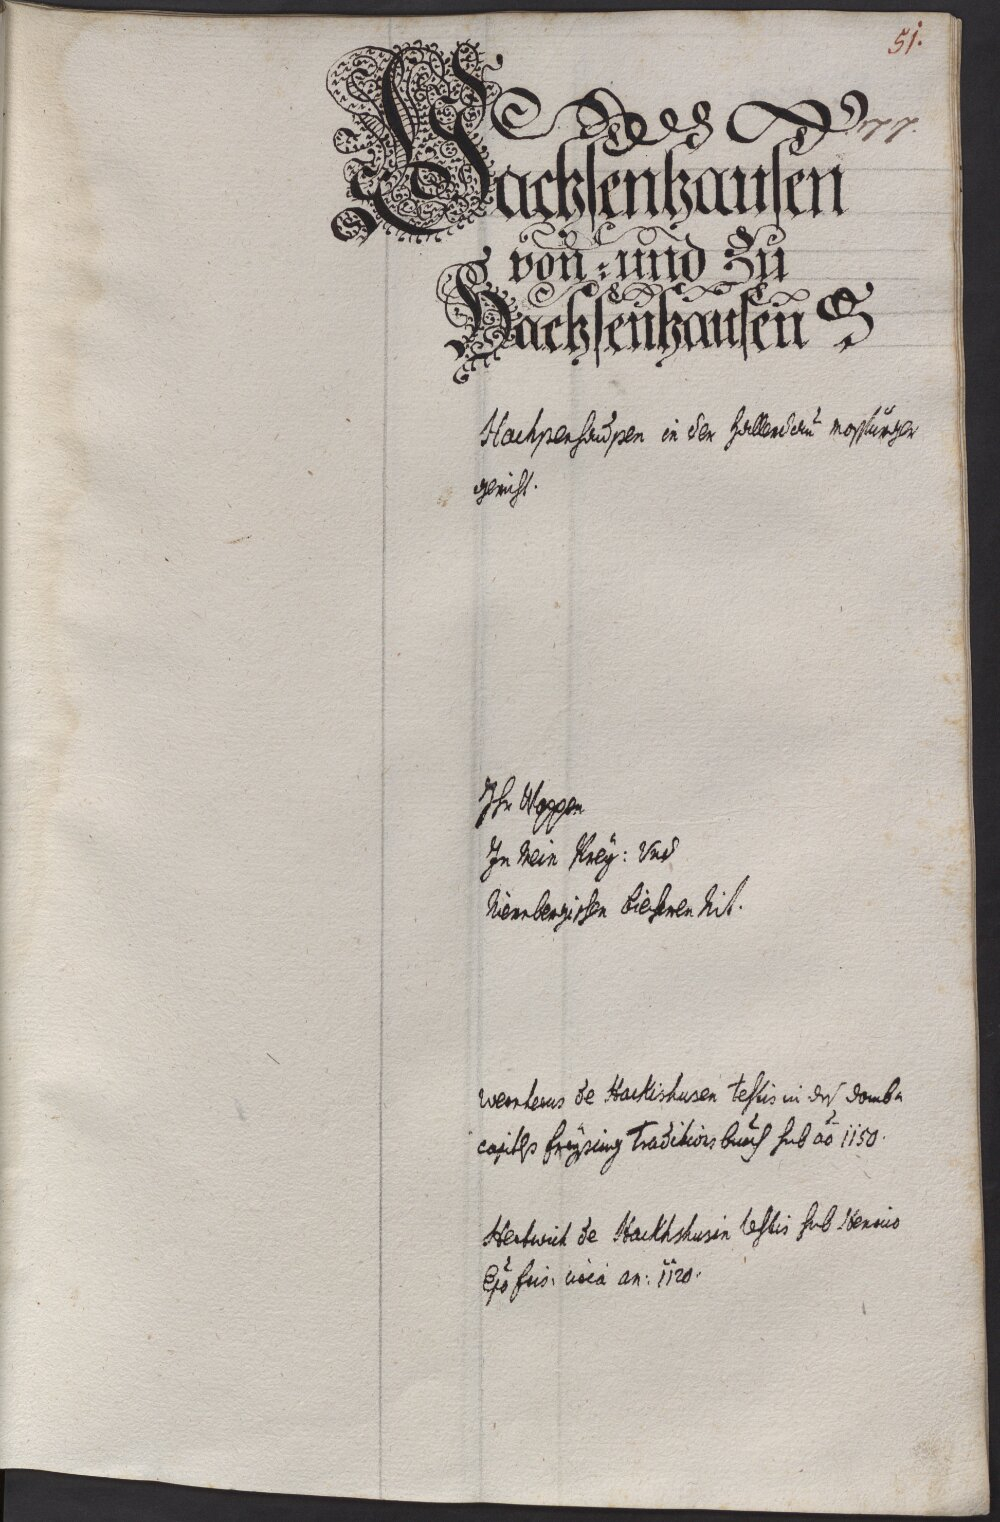 51.
77.
Hackhsenhausen
von: und Zu
Hackhsenhausen
Hachsenhausen in der Hallerdau mosburger
gericht.
Ihr Wappen
In Mein Prey: Vnd
Niernbergischen Biechren Nit.
Wernherus de Hackishusen testis in der Domb=
capitls freysing Traditions buech sub ao 1150.
Hertwich de Hackhshusin testis sub Henrico
Epo fris: circa an: 1120.